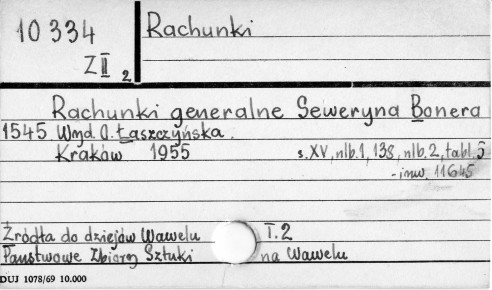 10 334
Z II 2
Rachunki
Rachunki generalne Seweryna Bonera
1545 Wyd. O. Łaszczyńska.
Kraków 1955 s. XV, nlb. 1, 138, nlb. 2, tabl. 5
- inw. 11645
Źródła do dziejów Wawelu T. 2
Państwowe Zbiory Sztuki na Wawelu
DUJ 1078/69 10.000